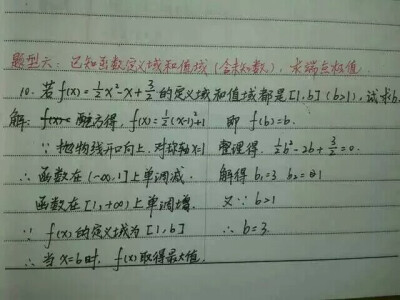 题型六：已知函数定义域和值域（含未知数），求端点极值.
10. 若f(x)=½x²-x+3/2的定义域和值域都是[1,b](b>1),试求b.
解: 配方得, f(x)=½(x-1)²+1
∵ 抛物线开口向上, 对称轴x=1
∴ 函数在(-∞,1]上单调减.
函数在[1,+∞)上单调增.
∵ f(x)的定义域为[1,b]
∴ 当x=b时, f(x)取得最大值.
即 f(b)=b.
整理得, ½b²-2b+3/2=0.
解得 b₁=3 b₂=1
又∵ b>1
∴ b=3.